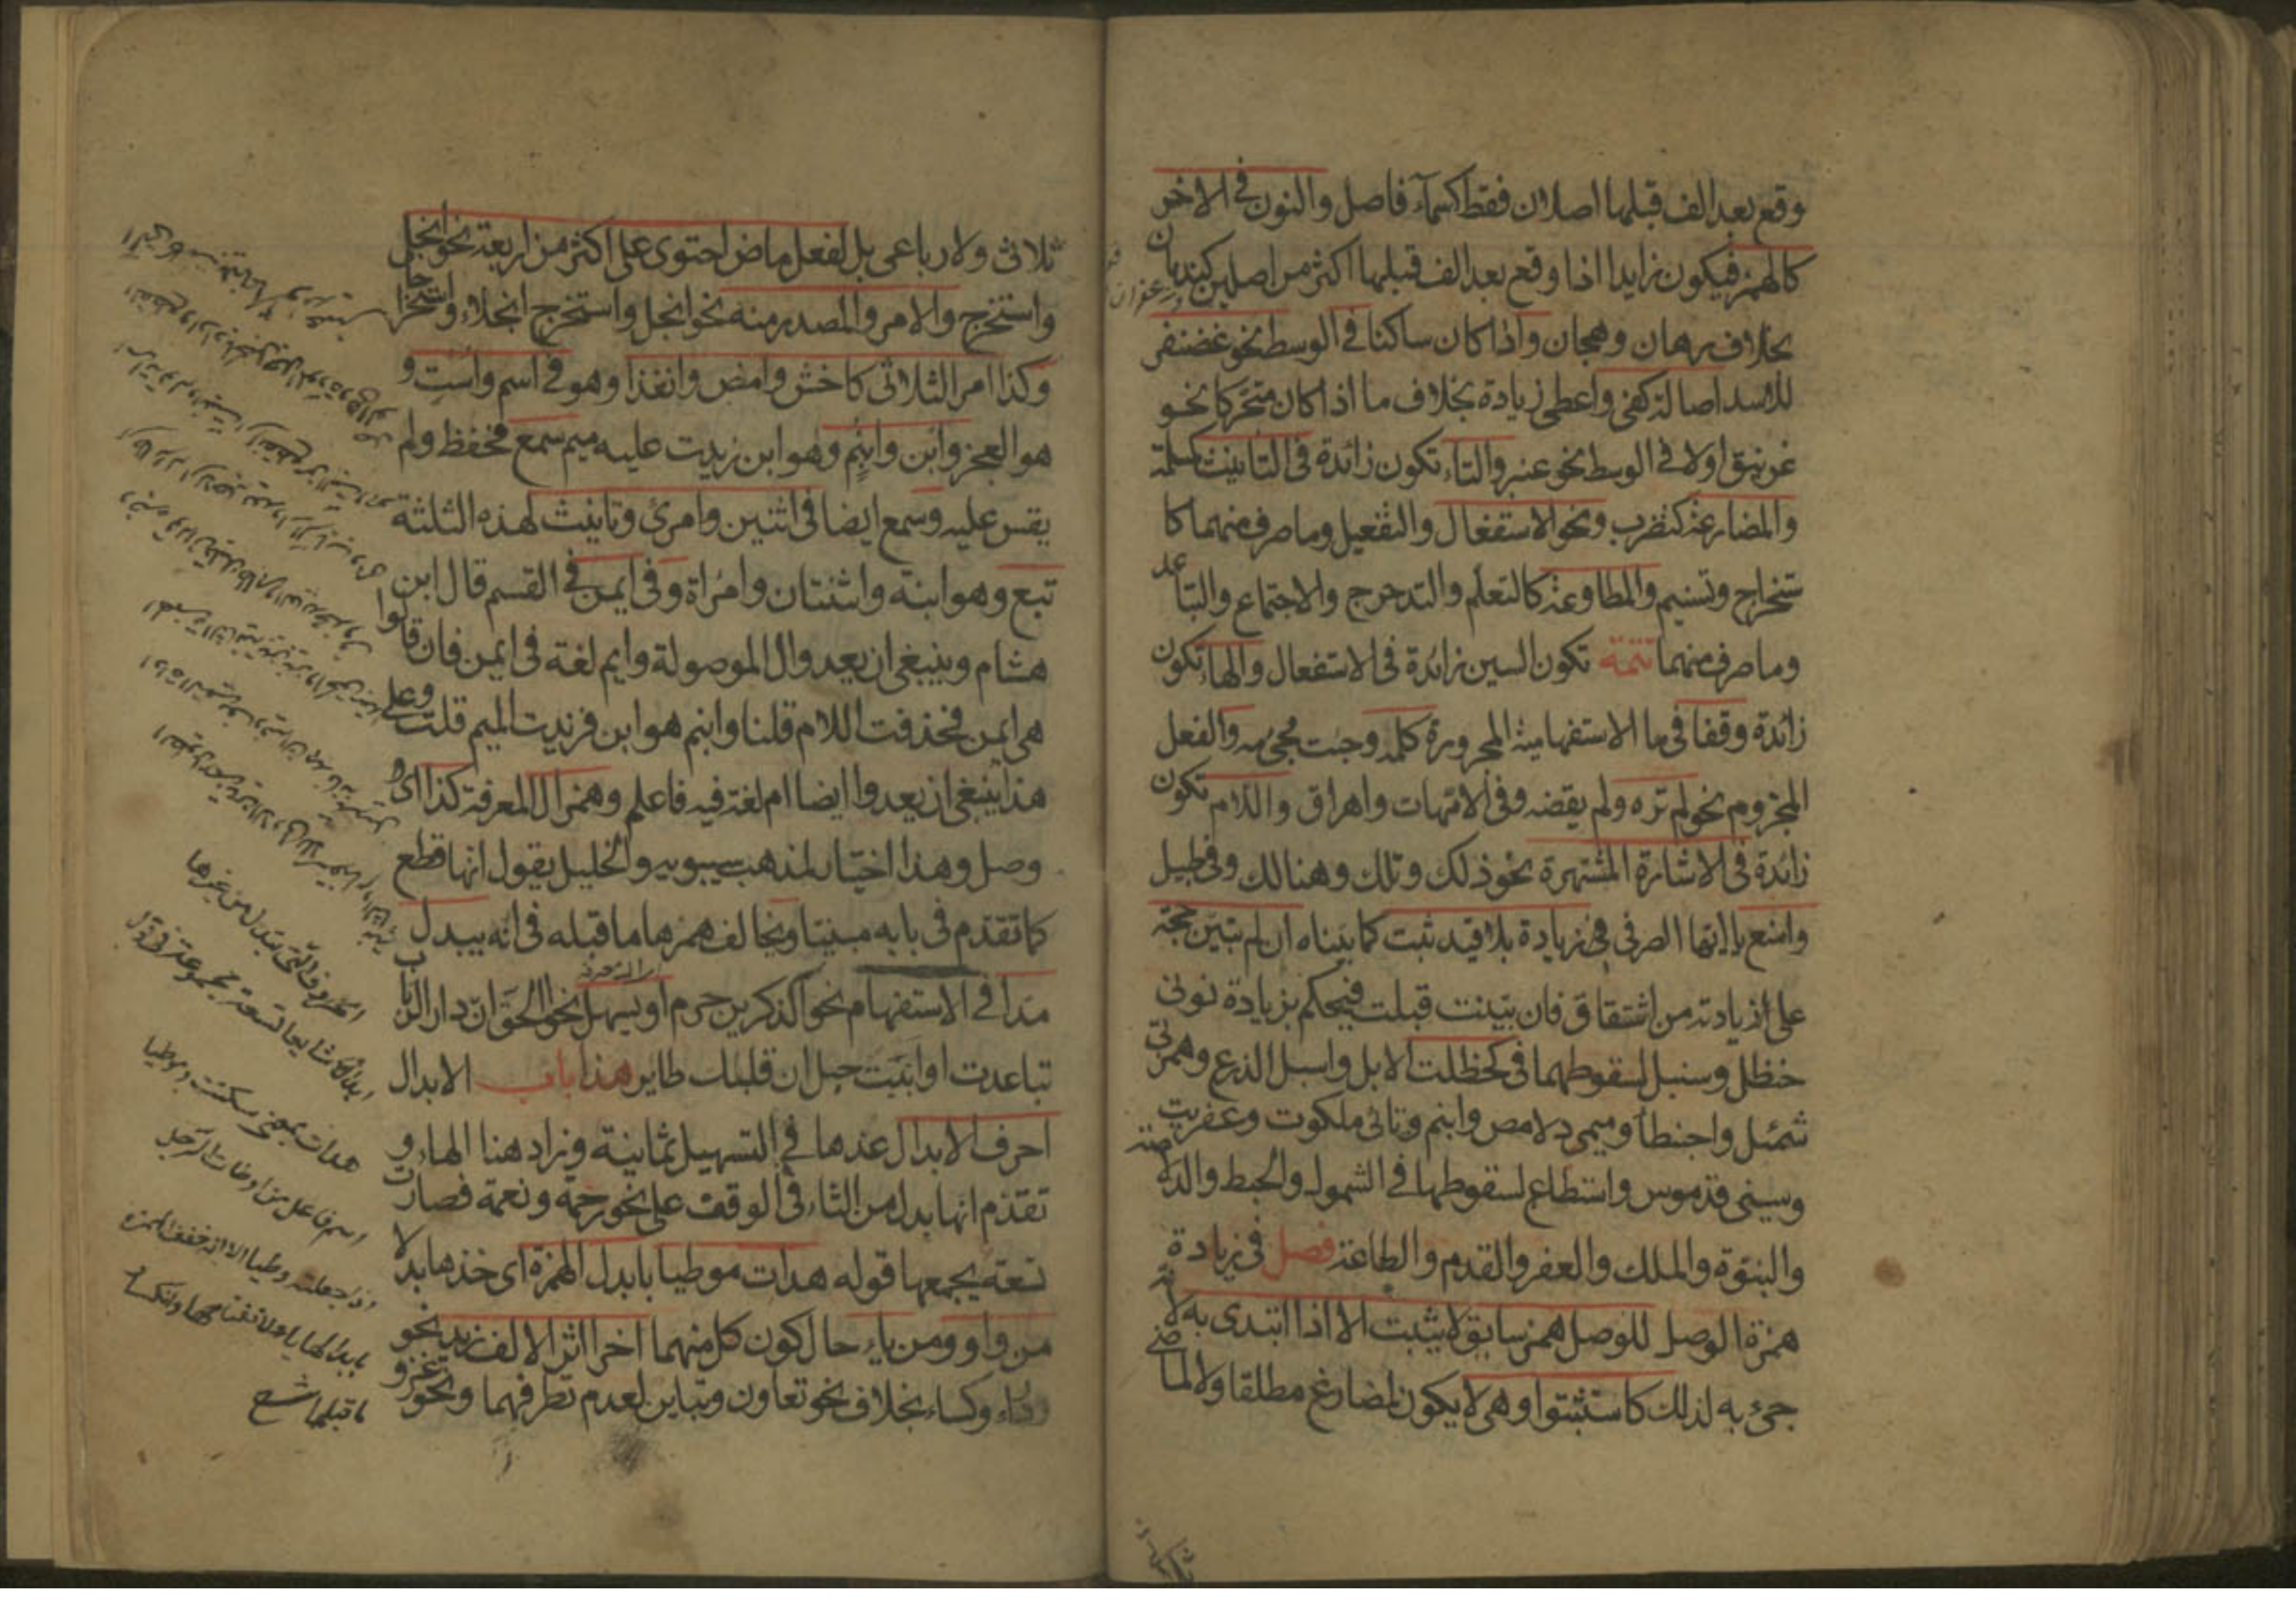 وقع بعد الف قبلها اصلان فقط كسماء فاصل والنون في الاخر
كالهمز فيكون زايدا اذا وقع بعد الف قبلها اكثر من اصلين كندمان
وزعفران
بخلاف رهان وهجان واذا كان ساكنا في الوسط نحو غضنفر
للاسد اصالة كفى واعطى زيادة بخلاف ما اذا كان متحركا نحو
غرنيق اولا في الوسط نحو عنبر والتاء تكون زائدة في التانيث كمسلمة
والمضارعة كتضرب ونحو الاستفعال والتفعيل وما صرف منهما كا
ستخراج وتسنيم والمطاوعة كالتعلم والتدحرج والاجتماع والتباعد
وما صرف منهما تتمة تكون السين زائدة في الاستفعال والهاء تكون
زائدة وقفا في ما الاستفهامية المجرورة كلمه وجئت مجئ مه والفعل
المجزوم نحو لم تره ولم يقضه وفي الامهات واهراق واللام تكون
زائدة في الاشارة المشتهرة نحو ذلك وتلك وهنالك وفي طيل
وامنع يا ايها الصرفي في زيادة بلا قيد ثبت كما بيناه ان لم تبين حجة
على زيادته من اشتقاق فان بينت قبلت فيحكم بزيادة نوني
حنظل وسنبل لسقوطهما في كحظلت الابل واسبل الذرع وهمزتي
شمئل واحبنطأ وميمي دلامص وابنم وتائي ملكوت وعفريت
وسيني قدموس واستطاع لسقوطها في الشمول والحبط والدلاصة
والبنوة والملك والعفر والقدم والطاعة فصل في زيادة
همزة الوصل للوصل همز سابق لا يثبت الا اذا ابتدى به لانه
جئ به لذلك كاستثبتوا وهي لا يكون لمضارع مطلقا ولا لماضي
ثلاثي ولا رباعي بل لفعل ماض احتوى على اكثر من اربعة نحو انجلى
واستخرج والامر والمصدر منه نحو انجل واستخرج انجلاء واستخراجا
وكذا امر الثلاثي كاخش وامض وانفذا وهو في اسم واست و
هو العجز وابن وابنم وهو ابن زيدت عليه ميم سمع فحفظ ولم
يقس عليه وسمع ايضا في اثنين وامرئ وتانيث لهذه الثلثة
تبع وهو ابنة واثنتان وامراة وفي ايمن في القسم قال ابن
هشام وينبغي ان يعدوال الموصولة وايم لغة في ايمن فان قالوا
هي ايمن فحذفت اللام قلنا وابنم هو ابن فزيدت الميم قلت وعلى
هذا ينبغي ان يعدوا ايضا ام لغة فيه فاعلم وهمز ال المعرفة كذا اي
وصل وهذا اختيار لمذهب سيبويه والخليل يقول انها قطع
كما تقدم في بابه مبينا ويخالف همزها ما قبله في انه يبدل
مدا في الاستفهام نحو آلذكرين حرم او يسهل نحو الحق ان دار الرباب
تباعدت او انبت حبل ان قلبك طاير هذا باب الابدال
احرف الابدال عدها في التسهيل ثمانية وزاد هنا الهاء و
تقدم انها بدل من التاء في الوقف على نحو رحمة ونعمة فصارت
تسعة يجمعها قوله هدأت موطيا بابدل الهمزة اي خذها بدلا
من واو ومن ياء حال كون كل منهما اخرا اثر الالف زيد نحو
رداء وكساء بخلاف نحو تعاون وتباين لعدم تطرفهما ونحو غزو
الحروف التي تبدل من غيرها
ابدالا شايعا تسعة مجموعة في قول
هدات بمعنى سكنت وموطيا
اسم فاعل من اوطات الرحل
اذا جعلته وطيا الا انه خفف الهمزة
بابدالها ياء لانفتاحها وانكسار
ما قبلها شح